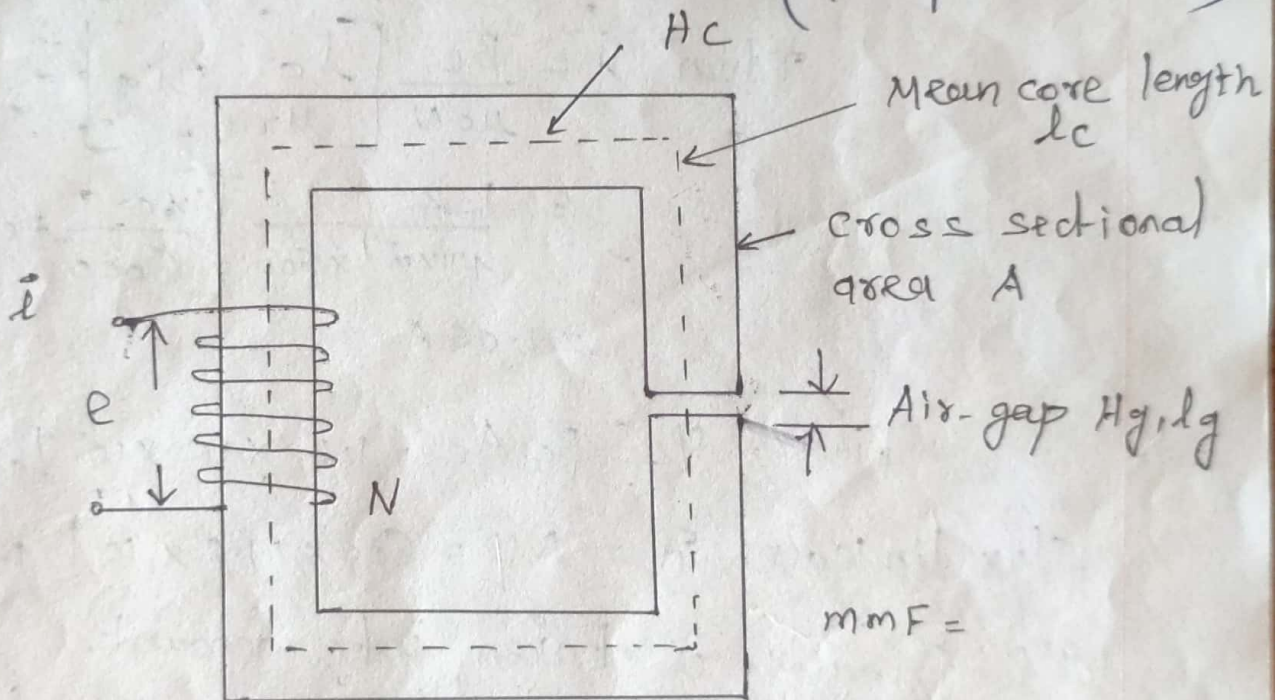 Hc
Mean core length
lc
cross sectional
area A
i
e
N
Air-gap Hg, lg
mmF =